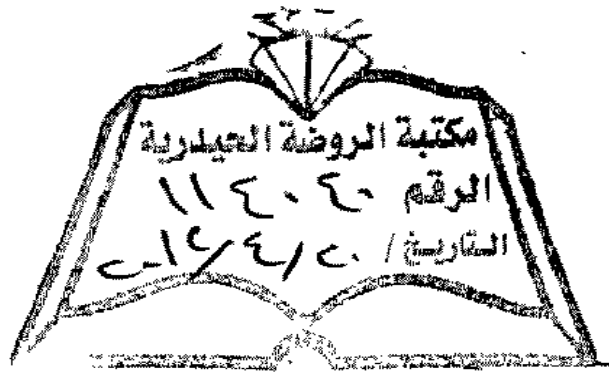 مكتبة الروضة الحيدرية
الرقم ١١٤٠٤٠
التاريخ / ٢٠/٤/٢٠١٢